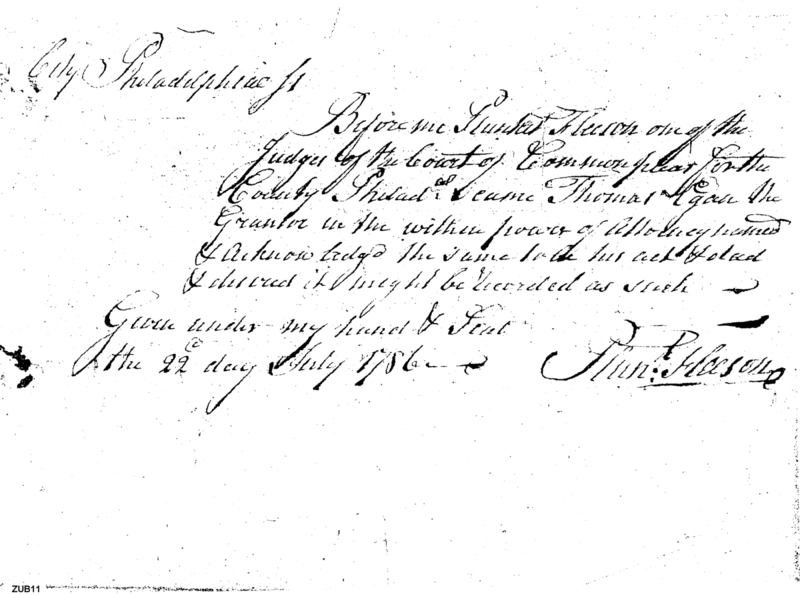 City Philadelphia ss
Before me Plunket Fleeson one of the
Judges of the Court of Common pleas for the
County Philad.a came Thomas Egan the
Grantor in the within power of Attorney named
& Acknowledged the same to be his act & deed
& desired it might be recorded as such
Given under my hand & Seal
the 22d day July 1786
Plunt. Fleeson
ZUB11